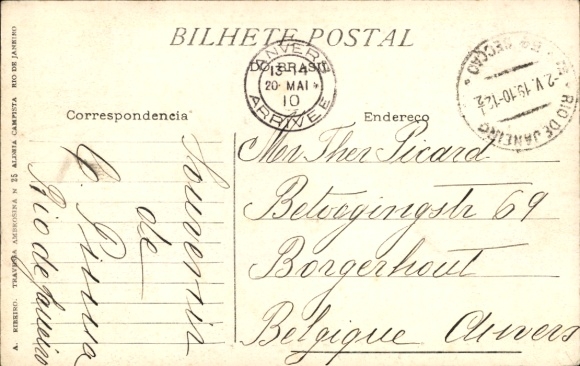 BILHETE POSTAL
DO BRASIL
ANVERS
13-14
20 MAI
10
ARRIVÉE
RIO DE JANEIRO
2.V.19.10-1
SECÇÃO
Correspondencia
Endereço
Souvenir
de
Rio de Janeiro
Mr Ther Picard
69
Borgerhout
Belgique Anvers
A. RIBEIRO. TRAVESSA AMBROSINA N 25 ALDEIA CAMPISTA RIO DE JANEIRO